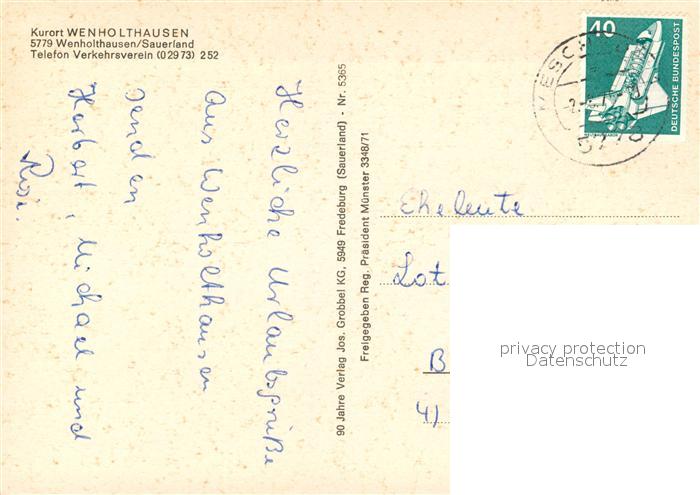 Kurort WENHOLTHAUSEN
5779 Wenholthausen/Sauerland
Telefon Verkehrsverein (02973) 252
40
DEUTSCHE BUNDESPOST
Herzliche Urlaubsgrüße
aus Wenholthausen
senden
Herbert, Michael und
90 Jahre Verlag Jos. Grobbel KG, 5949 Fredeburg (Sauerland) - Nr. 5365
Freigegeben Reg. Präsident Münster 3348/71
Eheleute
Lot
B
41
privacy protection
Datenschutz